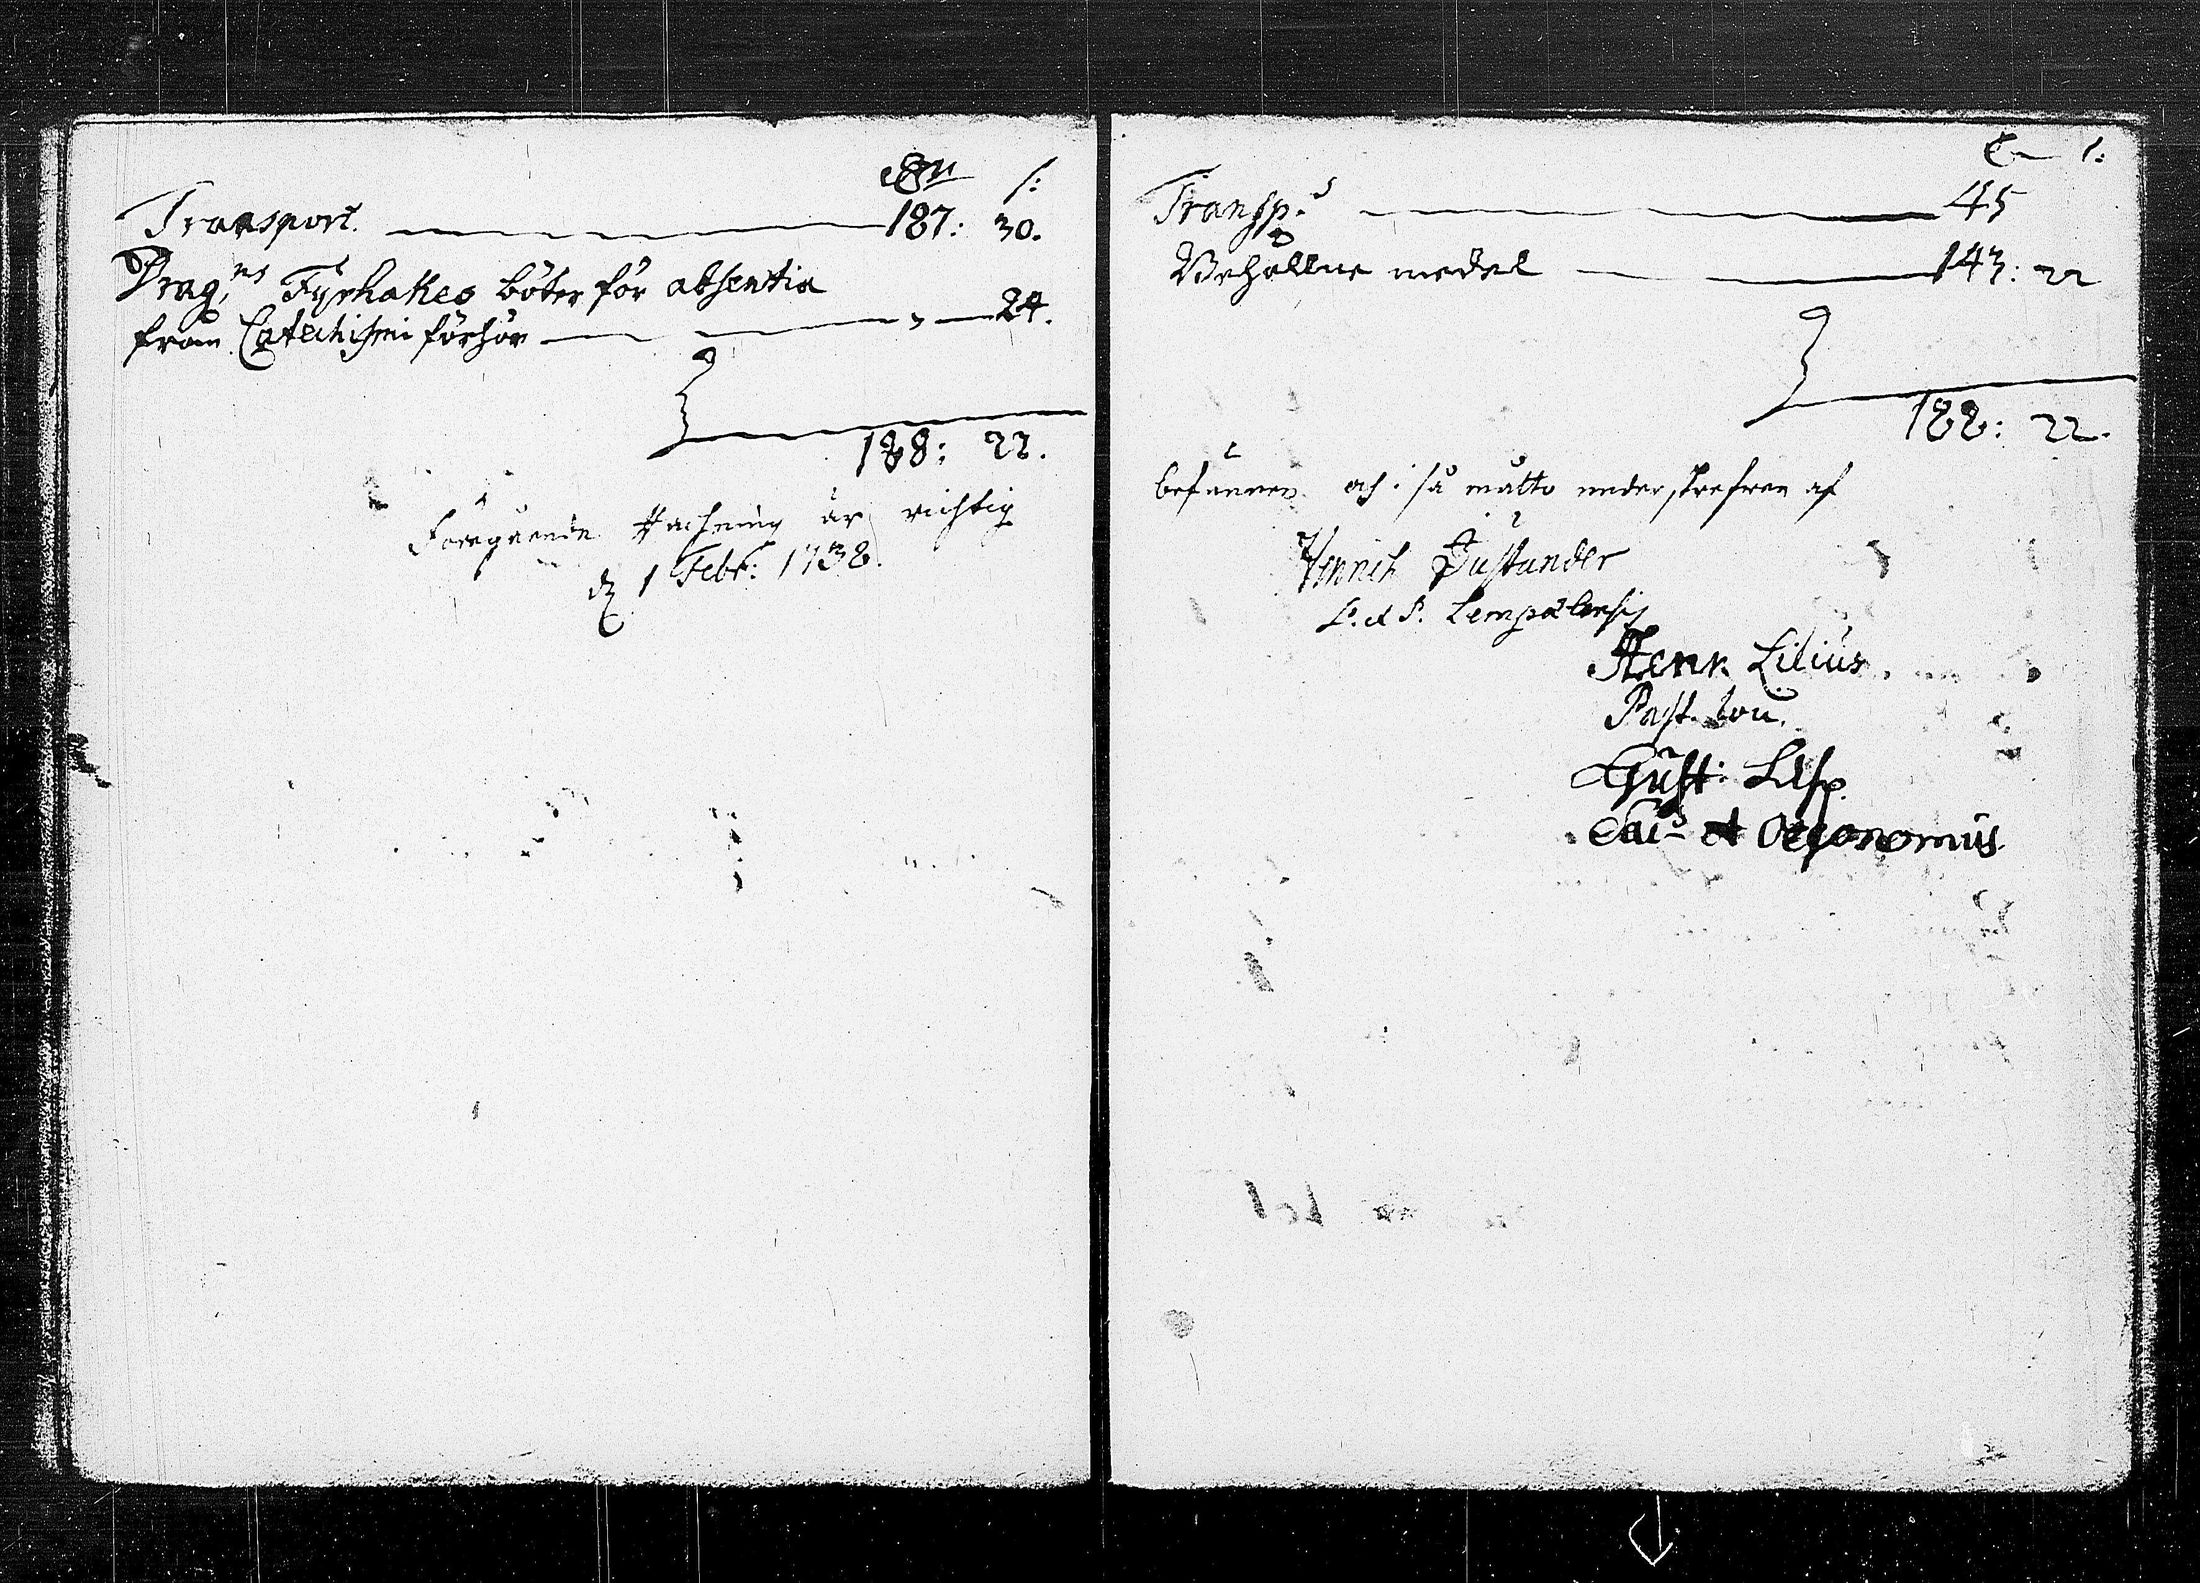 Transport. 187: 30.
Drag.ns Fyrhakes böter för absentia
från Catechismi förhör 24.
188: 22.
Föregående Rächning är richtig
d. 1 Febr: 1738.
Transp. 45
Behållne medel 143: 22
188: 22.
befunnen och i så måtto underskrefven af
Henrich
P. et P. Lempälensis
Henr. Lilius.
Past. loci.
Gust:
et Oeconomus.